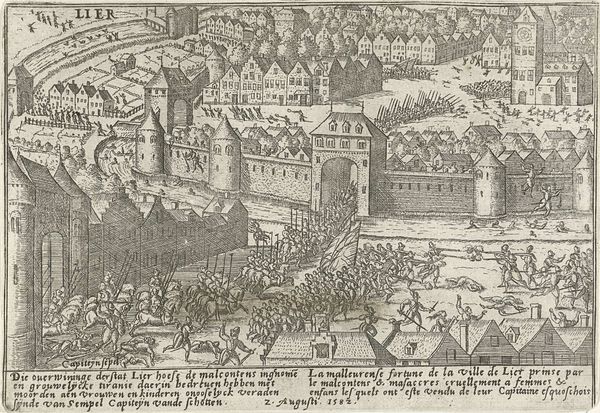 LIER
Capiteijn sijpel
Die overwininge der stat Lier hoese de malcontens ingnome
en grouwelijcke tiranie daer in bedreven hebben met
moorden aen vrouwen en kinderen onoselijck veraden
sijnde van Sempel Capiteijn vande schotten.
La malleureuse fortune de la ville de Lier prinse par
le malcontens & masacres cruellement a femmes &
enfans lesquels ont este vendu de leur Capitaine esquoschois
2. Augusti. 1582.